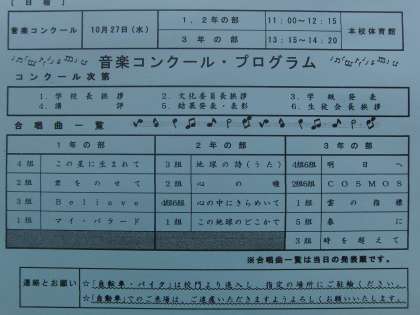 ［日程］
音楽コンクール 10月27日（水） 1，2年の部 11：00〜12：15 本校体育館
3年の部 13：15〜14：20
音楽コンクール・プログラム
コンクール次第
1．学校長挨拶 2．文化委員長挨拶 3．学級発表
4．講評 5．結果発表・表彰 6．生徒会長挨拶
合唱曲一覧
1年の部 2年の部 3年の部
4組 この星に生まれて 3組 地球の詩（うた） 4組6組 明日へ
2組 君をのせて 2組 心の瞳 2組6組 COSMOS
3組 Believe 4組6組 心の中にきらめいて 1組 雲の指標
1組 マイ・バラード 1組 この地球のどこかで 5組 春に
3組 時を超えて
※合唱曲一覧は当日の発表順です。
連絡とお願い ☆「自転車・バイク」は校門より進入し、指定の場所にご駐輪ください。
☆「自動車」でのご来場は、ご遠慮いただきますようよろしくお願いいたします。